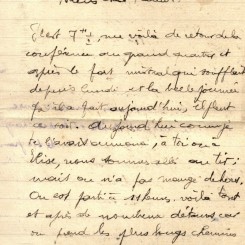 Il est 7 h, me voilà de retour de la
conférence au grand quartier et
après le fort mistral qui soufflait
depuis lundi et la belle journée
qu'il a fait aujourd'hui, il pleut
ce soir. Aujourd'hui comme je
l'avais annoncé, à toi ou à
Élise, nous sommes allés au tir,
mais on n'a pas mangé dehors.
On est parti à 11 heures, voilà tout
et après de nombreux détours car
on prend les plus longs chemins